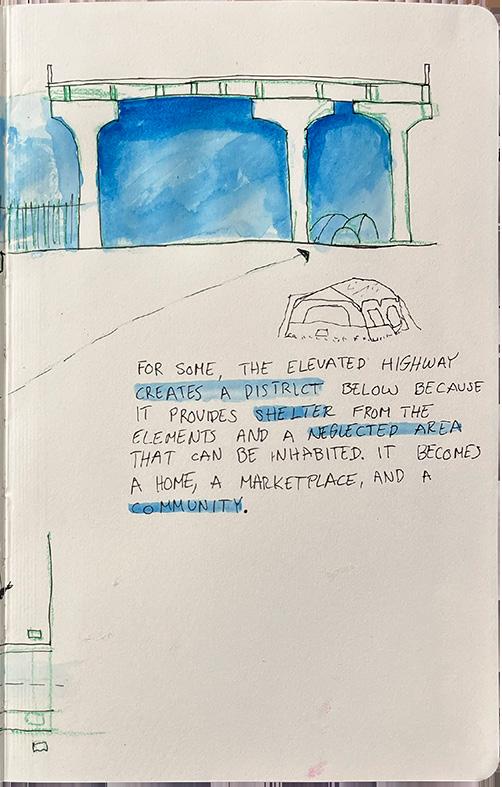 FOR SOME, THE ELEVATED HIGHWAY
CREATES A DISTRICT BELOW BECAUSE
IT PROVIDES SHELTER FROM THE
ELEMENTS AND A NEGLECTED AREA
THAT CAN BE INHABITED. IT BECOMES
A HOME, A MARKETPLACE, AND A
COMMUNITY.